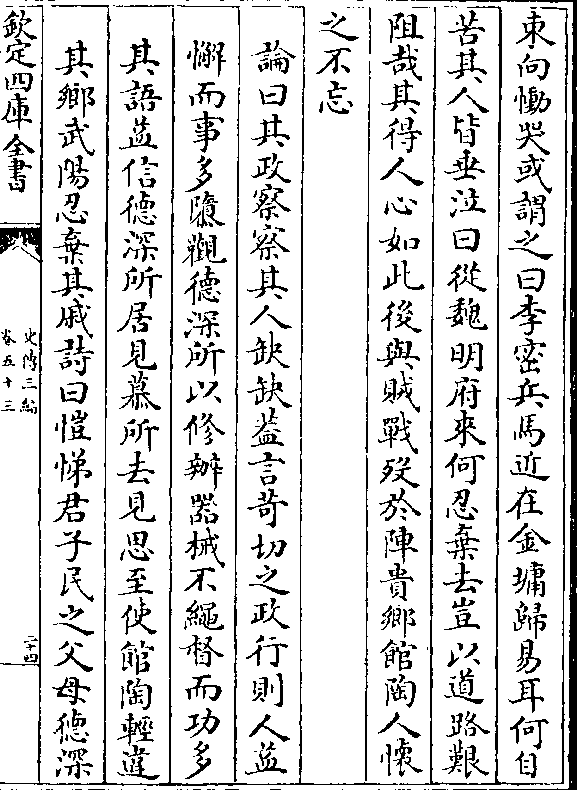 東向慟哭或謂之曰李密兵馬近在金墉歸易耳何自
苦其人皆垂泣曰從魏明府來何忍棄去豈以道路艱
阻哉其得人心如此後與賊戰歿於陣貴鄉館陶人懷
之不忘
論曰其政察察其人缺缺葢言苛切之政行則人益
懈而事多隳觀德深所以修辦器械不繩督而功多
其語益信德深所居見慕所去見思至使館陶輕違
其鄉武陽忍棄其戚詩曰愷悌君子民之父母德深
欽定四庫全書
史傳三編
卷五十三
二十四